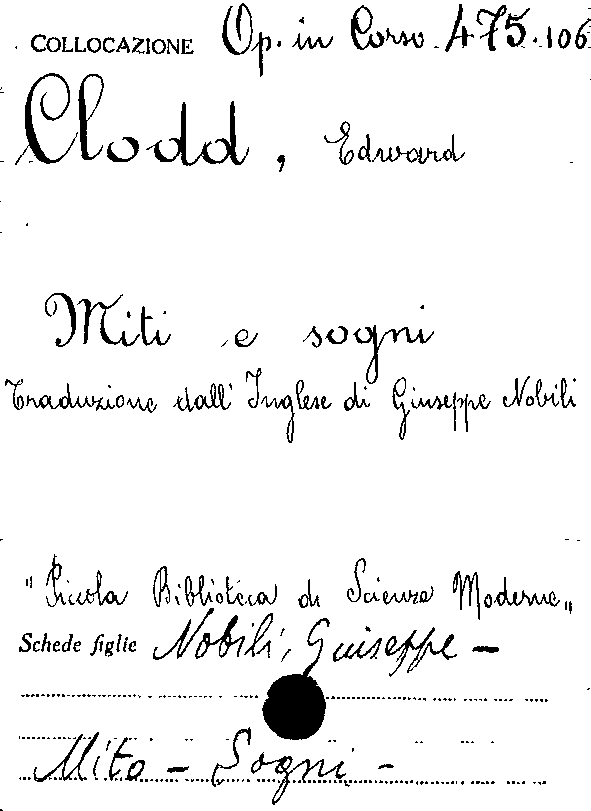 COLLOCAZIONE Op. in Corso 475.106
Clodd, Edward
Miti e sogni
Traduzione dall'Inglese di Giuseppe Nobili
"Piccola Biblioteca di Scienze Moderne„
Schede figlie Nobili, Giuseppe -
Mito - Sogni -